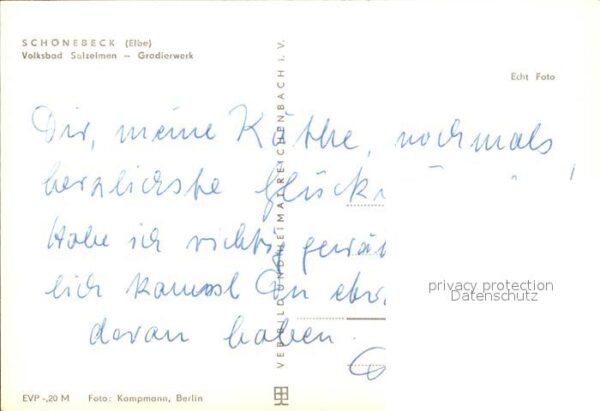 SCHÖNEBECK (Elbe)
Volksbad Salzelmen – Gradierwerk
Echt Foto
VEB BILD UND HEIMAT REICHENBACH I. V.
Dir, meine Käthe, nochmals
herzlichste Glück
Habe ich richtig
lich kannst Du
daran haben.
privacy protection
Datenschutz
EVP -,20 M Foto: Kampmann, Berlin